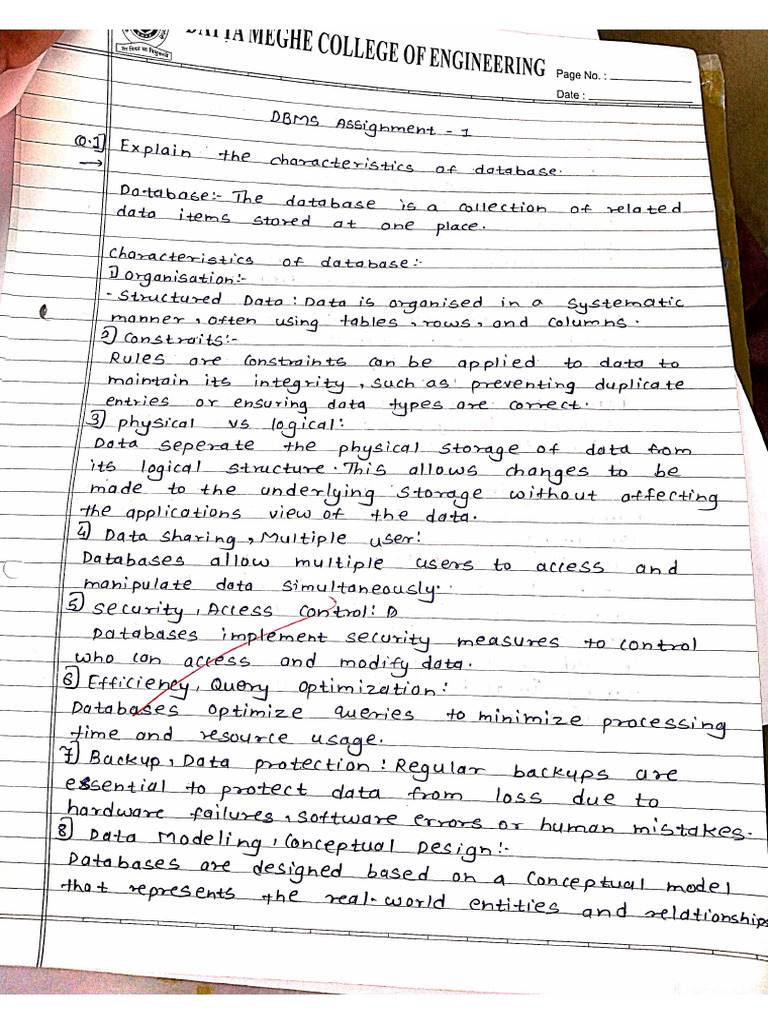 DATTA MEGHE COLLEGE OF ENGINEERING
Page No. :
Date :
DBMS Assignment - 1
Q.1] Explain the characteristics of database.
→
Database:- The database is a collection of related
data items stored at one place.
Characteristics of database:-
1) Organisation:-
- Structured Data : Data is organised in a systematic
manner, often using tables, rows, and columns.
2) Constraits:-
Rules are constraints can be applied to data to
maintain its integrity, such as preventing duplicate
entries or ensuring data types are correct.
3) physical vs logical:
Data seperate the physical storage of data from
its logical structure. This allows changes to be
made to the underlying storage without affecting
the applications view of the data.
4) Data sharing, Multiple user:
Databases allow multiple users to access and
manipulate data simultaneously.
5) Security, Access control: D
Databases implement security measures to control
who can access and modify data.
6) Efficiency, Query optimization:
Databases optimize queries to minimize processing
time and resource usage.
7) Backup, Data protection: Regular backups are
essential to protect data from loss due to
hardware failures, software errors or human mistakes.
8) Data Modeling, Conceptual Design:-
Databases are designed based on a conceptual model
that represents the real-world entities and relationships